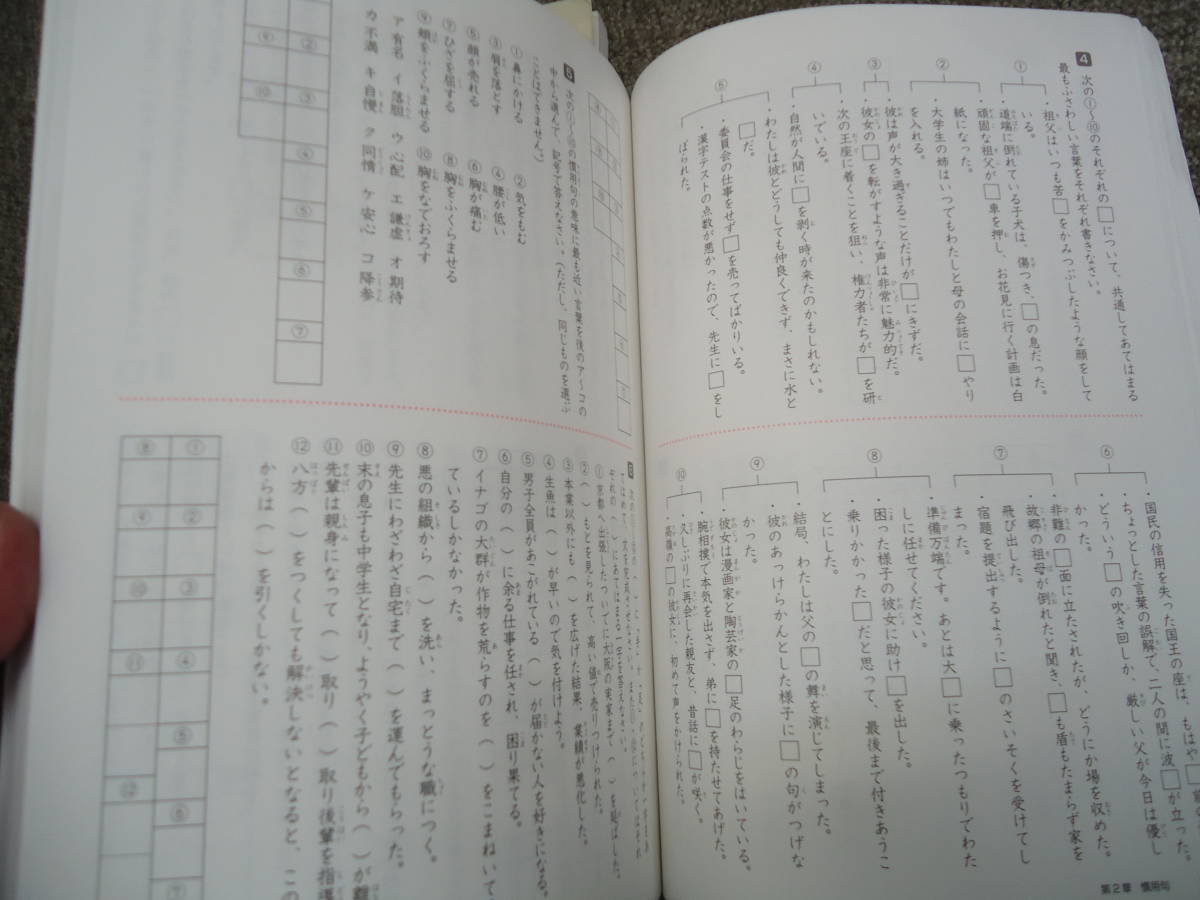 4 次の①～⑩のそれぞれの□について、共通してあてはまる
最もふさわしい言葉をそれぞれ書きなさい。
①
・祖父はいつも苦□をかみつぶしたような顔をして
いる。
・道端に倒れている子犬は、傷つき、□の息だった。
②
・頑固な祖父が□車を押し、お花見に行く計画は白
紙になった。
・大学生の姉はいつでもわたしと母の会話に□やり
を入れる。
③
・彼は声が大き過ぎることだけが□にきずだ。
・彼女の□を転がすような声は非常に魅力的だ。
④
・次の王座に着くことを狙い、権力者たちが□を研
いでいる。
・自然が人間に□を剥く時が来たのかもしれない。
⑤
・わたしは彼とどうしても仲良くできず、まさに水と
□だ。
・委員会の仕事をせず□を売ってばかりいる。
・漢字テストの点数が悪かったので、先生に□をし
ぼられた。
⑥
・国民の信用を失った国王の座は、もはや□前の
・ちょっとした言葉の誤解で、二人の間に波□が立った。
・どういう□の吹き回しか、厳しい父が今日は優し
かった。
⑦
・非難の□面に立たされたが、どうにか場を収めた。
・故郷の祖母が倒れたと聞き、□も盾もたまらず家を
飛び出した。
・宿題を提出するように□のさいそくを受けてし
まった。
⑧
・準備万端です。あとは大□に乗ったつもりでわた
しに任せてください。
・困った様子の彼女に助け□を出した。
・乗りかかった□だと思って、最後まで付きあうこ
とにした。
⑨
・結局、わたしは父の□の舞を演じてしまった。
・彼のあっけらかんとした様子に□の句がつげな
かった。
・彼女は漫画家と陶芸家の□足のわらじをはいている。
⑩
・腕相撲で本気を出さず、弟に□を持たせてあげた。
・久しぶりに再会した親友と、昔話に□が咲く。
・高嶺の□の彼女に、初めて声をかけられた。
第2章 慣用句
5 次の①～⑩の慣用句の意味に最も近い言葉を後のア～コの
中から選んで、記号で答えなさい。(ただし、同じものを選ぶ
ことはできません。)
① 鼻にかける ② 気をもむ
③ 肩を落とす ④ 腰が低い
⑤ 顔が売れる ⑥ 胸が痛む
⑦ ひざを屈する ⑧ 胸をふくらませる
⑨ 頬をふくらませる ⑩ 胸をなでおろす
ア 有名 イ 落胆 ウ 心配 エ 謙虚 オ 期待
カ 不満 キ 自慢 ク 同情 ケ 安心 コ 降参
② ③ ④ ⑤ ⑥ ⑦
⑨ ⑩
6
① 京都へ出張したついでに大阪の実家まで( )を延ばした。
②( )もとを見られて、高い値で売りつけられた。
③ 本業以外にも( )を広げた結果、業績が悪化した。
④ 生魚は( )が早いので気を付けよう。
⑤ 男子全員があこがれている( )が届かない人を好きになる。
⑥ 自分の( )に余る仕事を任され、困り果てる。
⑦ イナゴの大群が作物を荒らすのを( )をこまねいて
ているしかなかった。
⑧ 悪の組織から( )を洗い、まっとうな職につく。
⑨ 先生にわざわざ自宅まで( )を運んでもらった。
⑩ 末の息子も中学生となり、ようやく子どもから( )が離
⑪ 先輩は親身になって( )取り( )取り後輩を指導
⑫ 八方( )をつくしても解決しないとなると、この
からは( )を引くしかない。
① ③ ④ ⑤ ⑥ ⑦
⑧ ⑨ ② ⑩ ⑪ ⑫